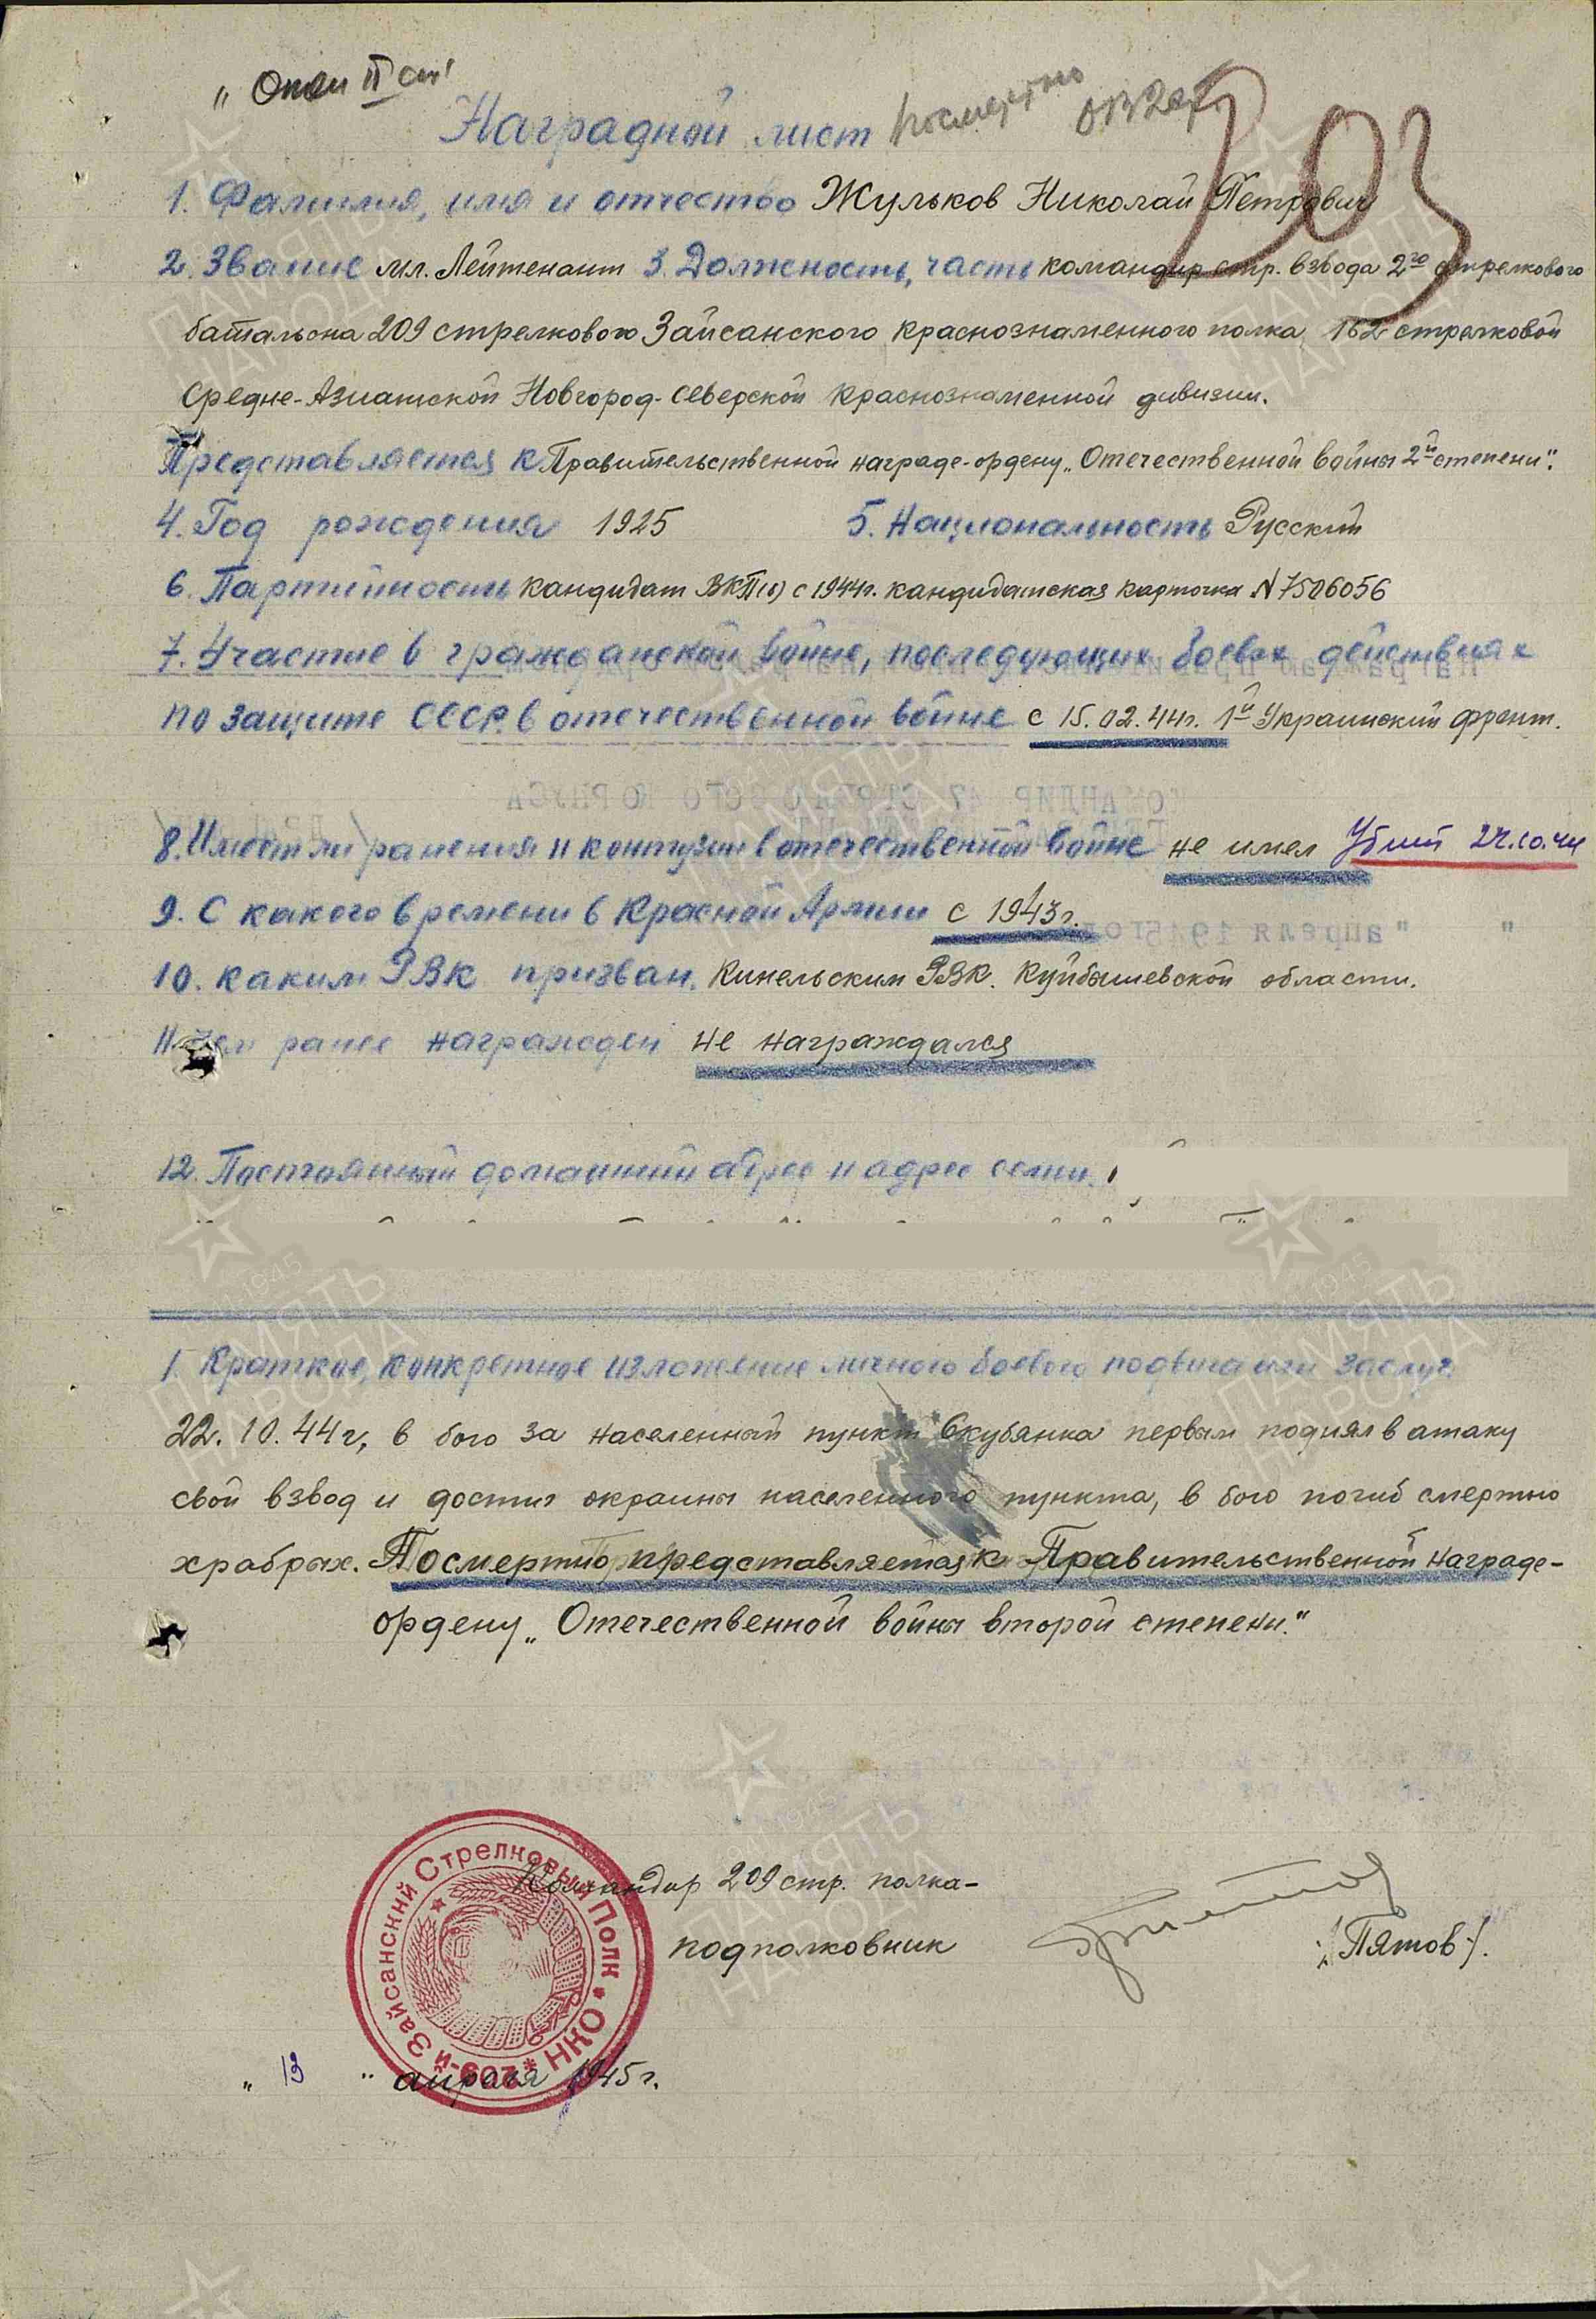 "Отеч II ст"
посмертно ОВ 2 ст.
203
Наградной лист
1. Фамилия, имя и отчество Жульков Николай Петрович
2. Звание мл. Лейтенант 3. Должность, часть командир стр. взвода 2го стрелкового
батальона 209 стрелкового Зайсанского краснознаменного полка 162 стрелковой
Средне-Азиатской Новгород-Северской Краснознаменной дивизии.
Представляется к Правительственной награде-ордену „Отечественной войны 2й степени".
4. Год рождения 1925 5. Национальность Русский
6. Партийность кандидат ВКП(б) с 1944г. кандидатская карточка N 7506056
7. Участие в гражданской войне, последующих боевых действиях
по защите СССР в отечественной войне с 15.02.44г. 1й Украинский фронт.
8. Имеет ли ранения и контузии в отечественной войне не имел Убит 22.10.44
9. С какого времени в Красной Армии с 1943г.
10. каким РВК призван. Кинельским РВК. Куйбышевской области.
11. Чем ранее награжден не награждался
12. Постоянный домашний адрес и адрес семьи.
1. Краткое, конкретное изложение личного боевого подвига или заслуг.
22.10.44г, в бою за населенный пункт Скубянка первым поднял в атаку
свой взвод и достиг окраины населенного пункта, в бою погиб смертью
храбрых. Посмертно представляется к Правительственной награде-
ордену „Отечественной войны второй степени."
Командир 209 стр. полка-
подполковник /Пятов/.
209-й Зайсанский Стрелковый Полк * НКО *
„ 19 " апреля 1945г.
ПАМЯТЬ НАРОДА